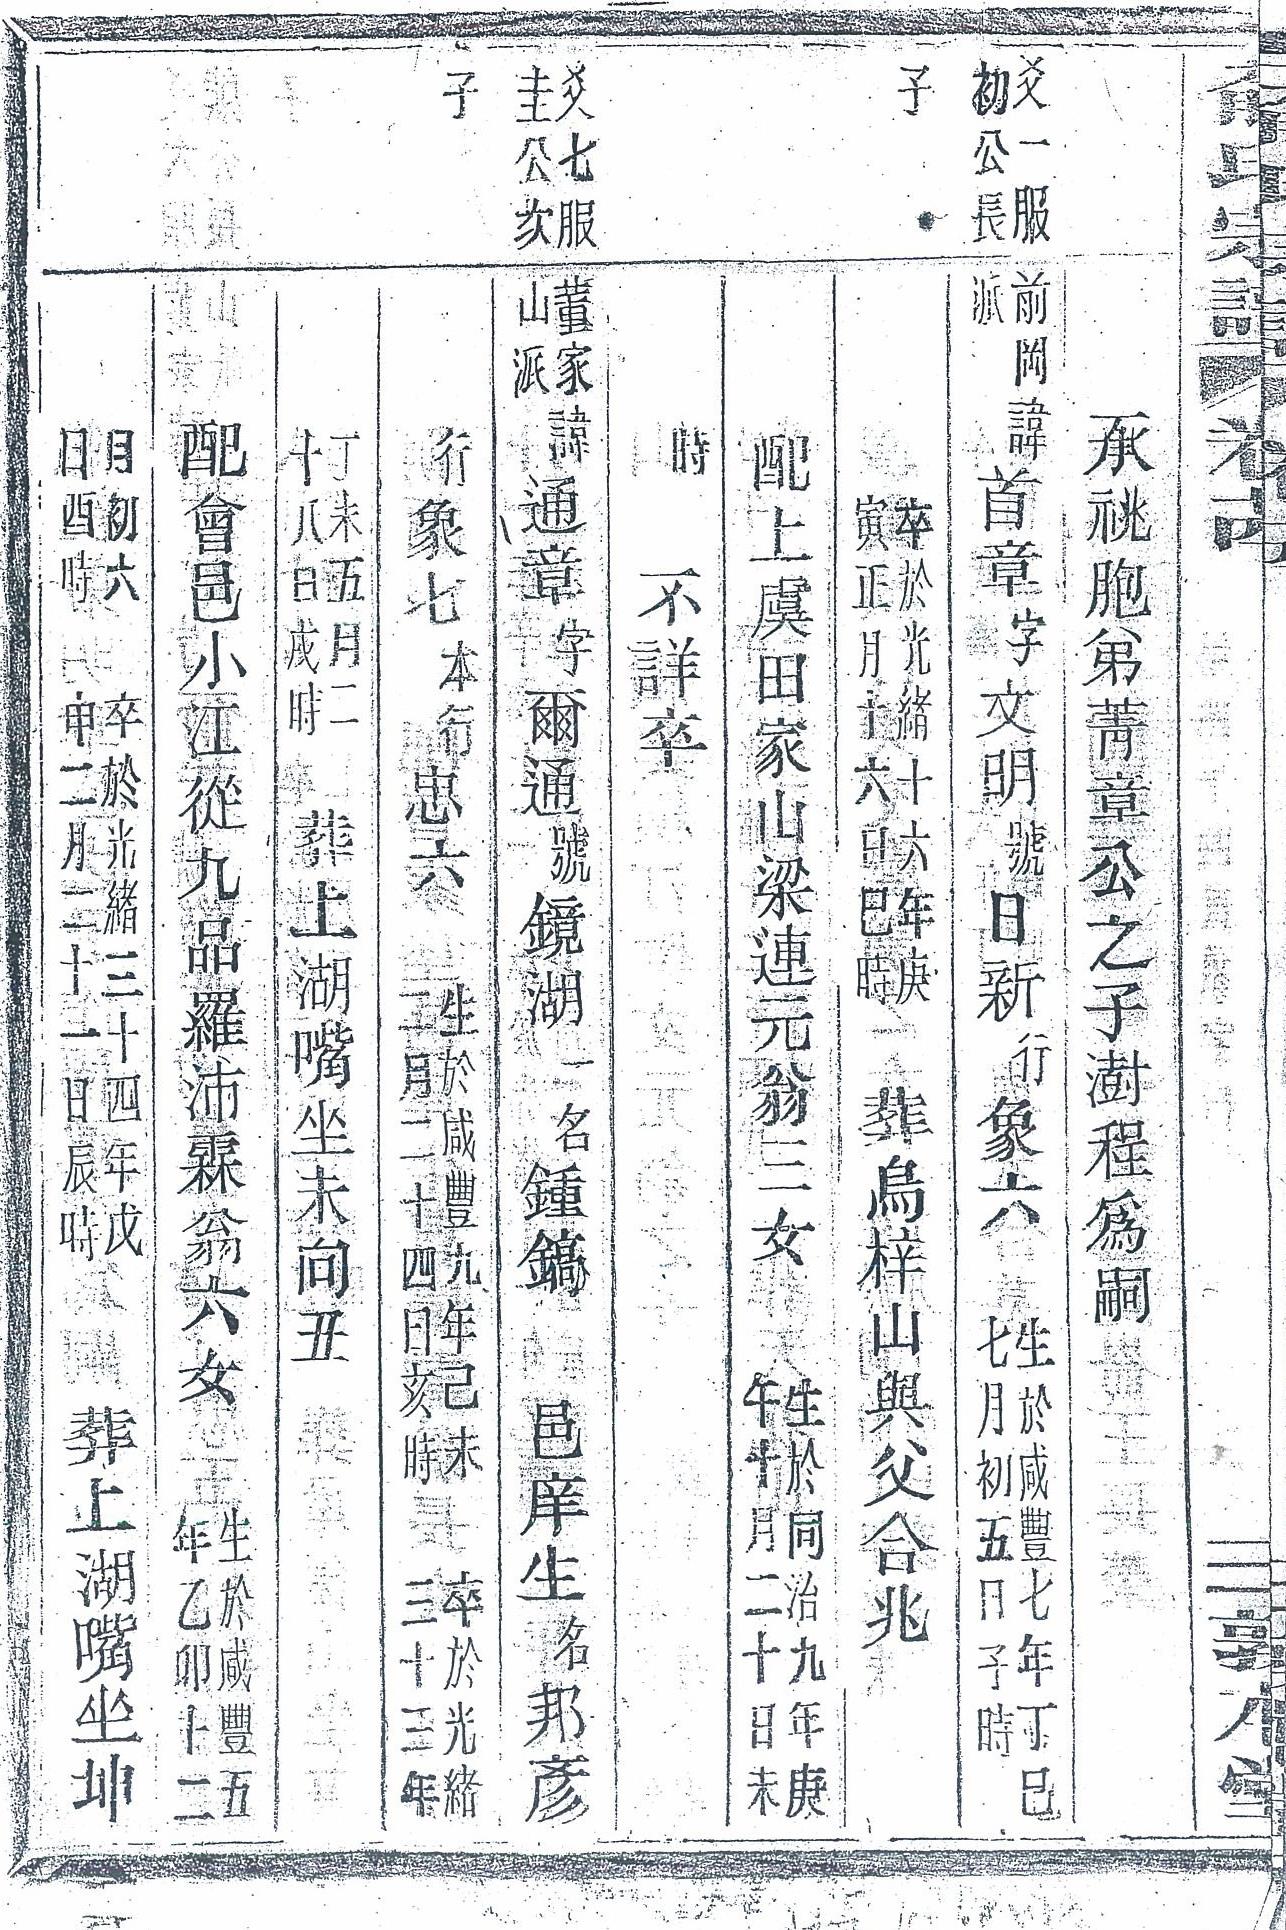 氏宗譜 卷
承祧胞弟菁章公之子澍程爲嗣
爻一服
初公長
子
前岡
派
諱首章字文明號日新行象六
生於咸豐七年丁巳
七月初五日子時
卒於光緒十六年庚
寅正月十六日巳時
葬烏梓山與父合兆
配上虞田家山梁連元翁三女
生於同治九年庚
午十月二十日未
時
不詳卒
爻七服
圭公次
子
董家
山派
諱通章字爾通號鏡湖一名鍾鎬
邑庠生名邦彥
行象七本行忠六
生於咸豐九年己未
三月二十四日亥時
卒於光緒
三十三年
丁未五月二
十八日戌時
葬上湖嘴坐未向丑
配會邑小江從九品羅沛霖翁六女
生於咸豐五
年乙卯十二
月初六
日酉時
卒於光緒三十四年戊
申二月二十一日辰時
葬上湖嘴坐坤